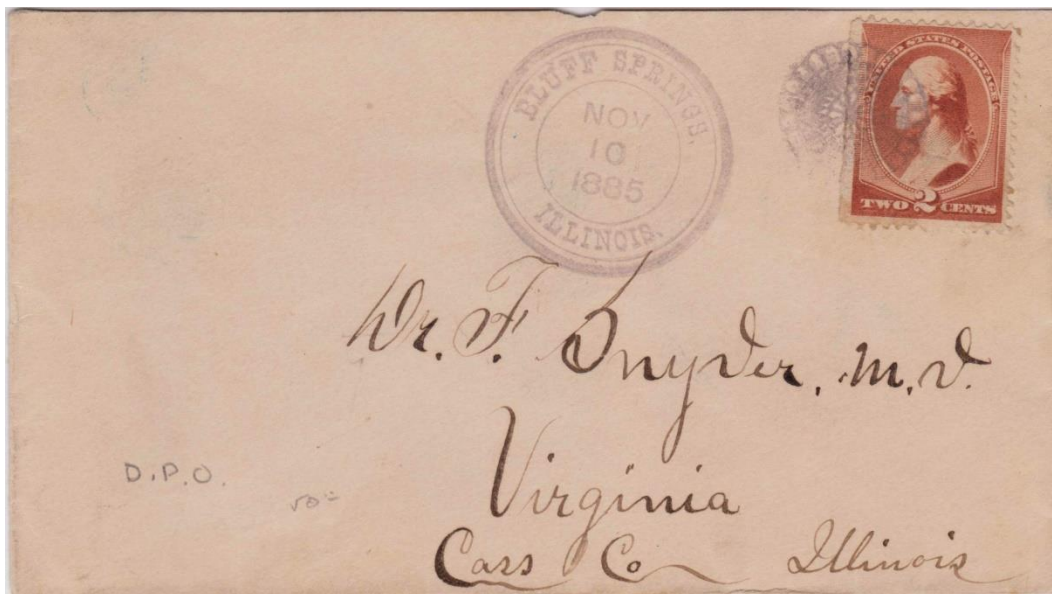 BLUFF SPRINGS,
NOV
10
1885
ILLINOIS.
UNITED STATES POSTAGE
TWO 2 CENTS
Dr. F. Snyder, M.D.
Virginia
Cass Co Illinois
D.P.O.
50=